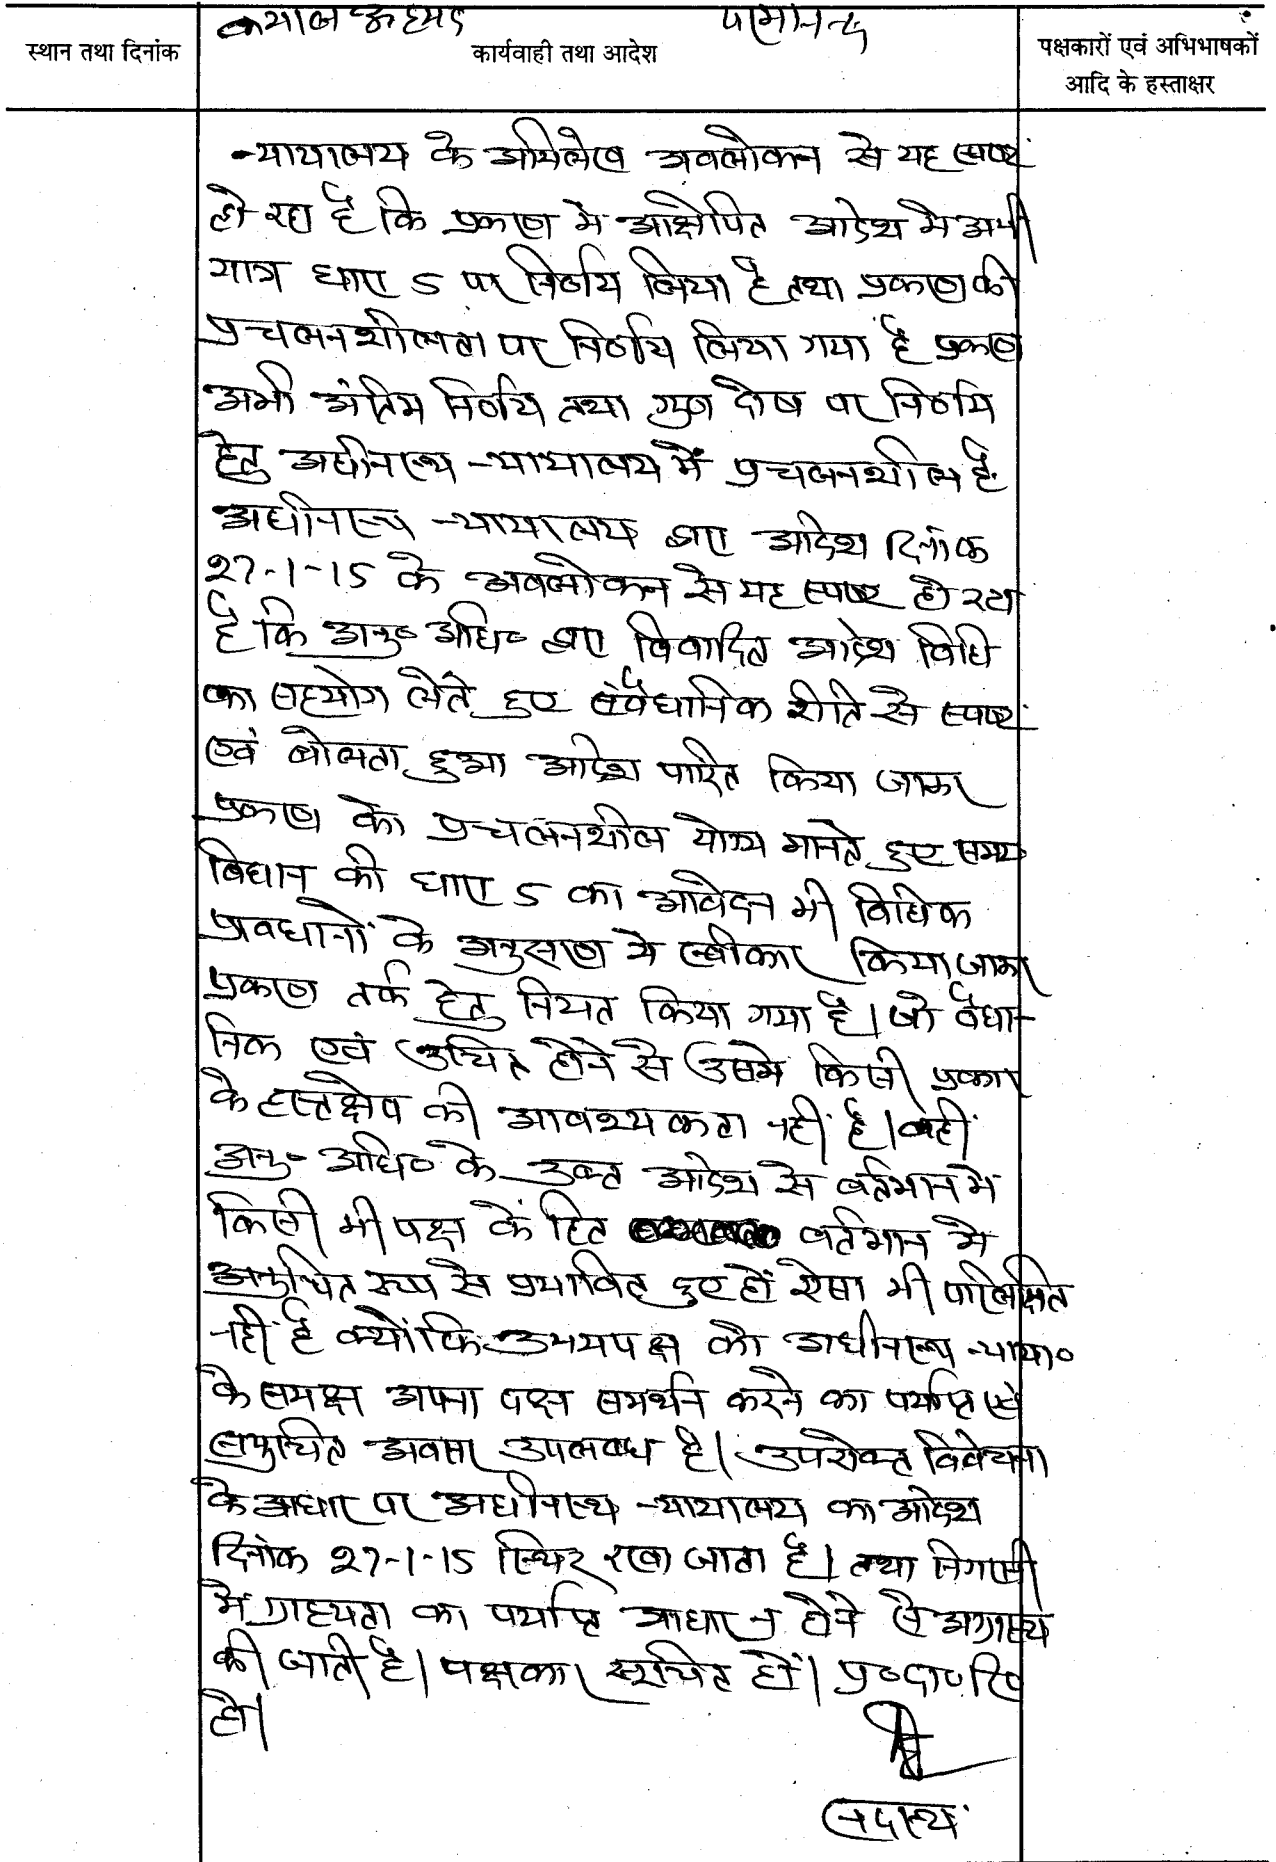 कमाल अहमद परमानन्द
स्थान तथा दिनांक
कार्यवाही तथा आदेश
पक्षकारों एवं अभिभाषकों
आदि के हस्ताक्षर
न्यायालय के अभिलेख अवलोकन से यह स्पष्ट
हो रहा है कि प्रकरण में आक्षेपित आदेश में अभी
मात्र धारा 5 पर निर्णय लिया है तथा प्रकरण की
प्रचलनशीलता पर निर्णय लिया गया है प्रकरण
अभी अंतिम निर्णय तथा गुण दोष पर निर्णय
हेतु अधीनस्थ न्यायालय में प्रचलनशील है
अधीनस्थ न्यायालय द्वारा आदेश दिनांक
27-1-15 के अवलोकन से यह स्पष्ट हो रहा
है कि अनु० अधि० द्वारा विवादित आदेश विधि
का सहयोग लेते हुए संवैधानिक रीति से स्पष्ट
एवं बोलता हुआ आदेश पारित किया जाकर
प्रकरण को प्रचलनशील योग्य मानते हुए समय
विधान की धारा 5 का आवेदन भी विधिक
प्रावधानों के अनुसरण में स्वीकार किया जाकर
प्रकरण तर्क हेतु नियत किया गया है। जो वैधा-
निक एवं उचित होने से उसमें किसी प्रकार
के हस्तक्षेप की आवश्यकता नहीं है। वहीं
अनु० अधि० के उक्त आदेश से वर्तमान में
किसी भी पक्ष के हित वर्तमान में
अनुचित रूप से प्रभावित हुए हों ऐसा भी परिलक्षित
नहीं है क्योंकि उभयपक्ष को अधीनस्थ न्याया०
के समक्ष अपना पक्ष समर्थन करने का पर्याप्त एवं
समुचित अवसर उपलब्ध है। उपरोक्त विवेचना
के आधार पर अधीनस्थ न्यायालय का आदेश
दिनांक 27-1-15 स्थिर रखा जाता है। तथा निगरानी
में ग्राह्यता का पर्याप्त आधार न होने से अग्राह्य
की जाती है। पक्षकार सूचित हों। प्र० दा० रि०
हो।
सदस्य